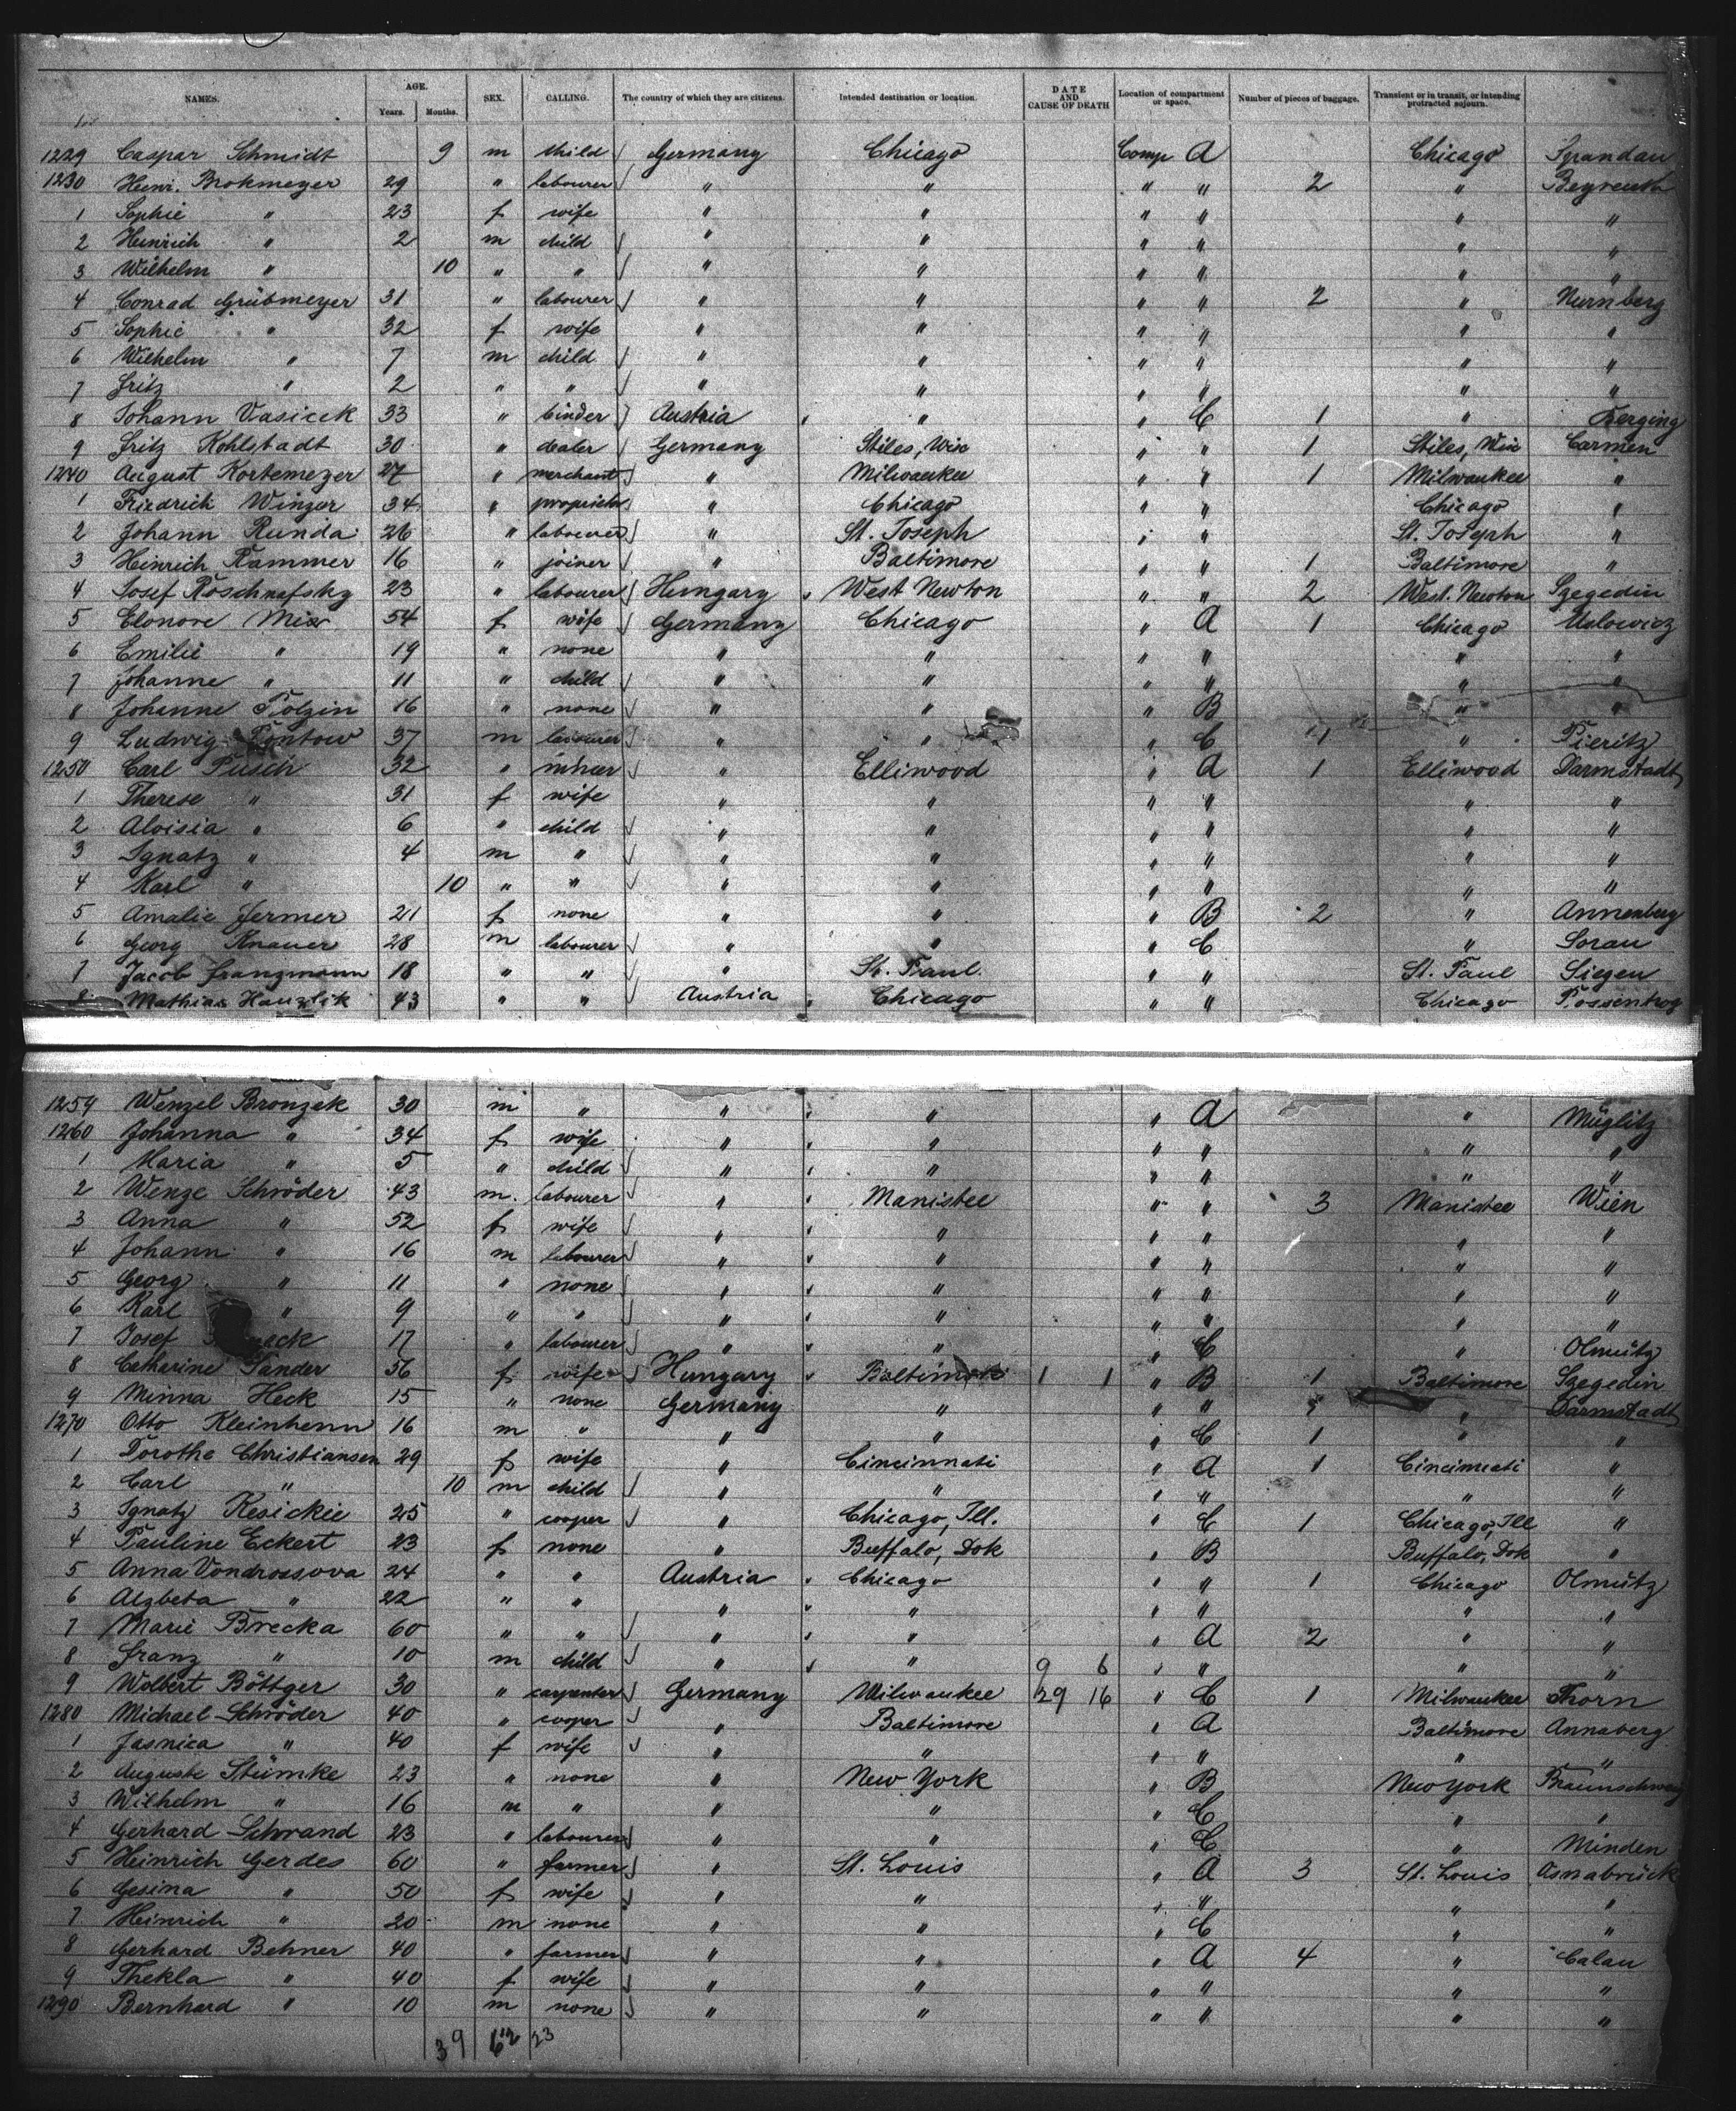 NAMES. AGE. Years. Months. SEX. CALLING. The country of which they are citizens. Intended destination or location. DATE AND CAUSE OF DEATH Location of compartment or space. Number of pieces of baggage. Transient or in transit, or intending protracted sojourn.
1229 Caspar Schmidt 9 m child Germany Chicago Comp A Chicago Spandau
1230 Heinr. Brokmeyer 29 " labourer " " " " 2 " Beyreuth
1 Sophie " 23 f wife " " " " " "
2 Heinrich " 2 m child " " " " " "
3 Wilhelm " 10 " " " " " " " "
4 Conrad Grübmeyer 31 " labourer " " " " 2 " Nurnberg
5 Sophie " 32 f wife " " " " " "
6 Wilhelm " 7 m child " " " " " "
7 Fritz " 2 " " " " " " " "
8 Johann Vasicek 33 " binder Austria " " C 1 "
9 Fritz Kohlstadt 30 " dealer Germany Stiles, Wis " " 1 Stiles, Wis Carmen
1240 August Kortemeyer 27 " merchant " Milwaukee " " 1 Milwaukee "
1 Friedrich Winzer 34 " " Chicago " " Chicago "
2 Johann Runda 26 " labourer " St. Joseph " " St. Joseph "
3 Heinrich Kammer 16 " joiner " Baltimore " " 1 Baltimore "
4 Josef Roschnafsky 23 " labourer Hungary West Newton " " 2 West. Newton Szegedin
5 Elonore Mix 54 f wife Germany Chicago " A 1 Chicago
6 Emilie " 19 " none " " " " " "
7 Johanne " 11 " child " " " " " "
8 Johanne Polzin 16 " none " " " B " "
9 Ludwig 37 m labourer " " " C 1 " Pieritz
1250 Carl Pusch 32 " " Elliwood " A 1 Elliwood Darmstadt
1 Therese " 31 f wife " " " " " "
2 Aloisia " 6 " child " " " " " "
3 Ignatz " 4 m " " " " " " "
4 Karl " 10 " " " " " " " "
5 Amalie Fermer 21 f none " " " B 2 " Annenberg
6 Georg Knauer 28 m labourer " " " C " Sorau
7 Jacob Franzmann 18 " " " St. Paul. " " St. Paul Siegen
8 Mathias Hanzlik 43 " " Austria Chicago " " Chicago
1259 Wenzel Bronzek 30 m " " " " A " Müglitz
1260 Johanna " 34 f wife " " " " " "
1 Maria " 5 " child " " " " " "
2 Wenze Schröder 43 m. labourer " Manistee " " 3 Manistee Wien
3 Anna " 52 f wife " " " " " "
4 Johann " 16 m labourer " " " " " "
5 Georg " 11 " none " " " " " "
6 Karl " 9 " " " " " " " "
7 Josef 17 " labourer " " " C " Olmütz
8 Catharine Sander 56 f wife Hungary Baltimore 1 1 " B 1 Baltimore Szegedin
9 Minna Heck 15 " none Germany " " " " Darmstadt
1270 Otto Kleinhenn 16 m " " " " C 1 " "
1 Dorothe Christiansen 29 f wife " Cincinnati " A 1 Cincinnati "
2 Carl " 10 m child " " " " " "
3 Ignatz Kesickie 25 " cooper " Chicago, Ill. " C 1 Chicago, Ill "
4 Pauline Eckert 23 f none " Buffalo, Dok " B Buffalo, Dok "
5 Anna Vondrossova 24 " " Austria Chicago " " 1 Chicago Olmütz
6 Alzbeta " 22 " " " " " " " "
7 Marie Brecka 60 " " " " " A 2 " "
8 Franz " 10 m child " " 9 6 " " " "
9 Wolbert Böttger 30 " carpenter Germany Milwaukee 29 16 " C 1 Milwaukee Thorn
1280 Michael Schröder 40 " cooper " Baltimore " A Baltimore Annaberg
1 Jasnica " 40 f wife " " " " " "
2 Auguste Stümke 23 " none " New York " B New York Braunschweig
3 Wilhelm " 16 m " " " " C " "
4 Gerhard Schrand 23 " labourer " " " C " Minden
5 Heinrich Gerdes 60 " farmer " St. Louis " A 3 St. Louis Osnabrück
6 Gesina " 50 f wife " " " " " "
7 Heinrich " 20 m none " " " C " "
8 Gerhard Behner 40 " farmer " " " A 4 " Calau
9 Thekla " 40 f wife " " " " " "
1290 Bernhard " 10 m none " " " " " "
39 62 23